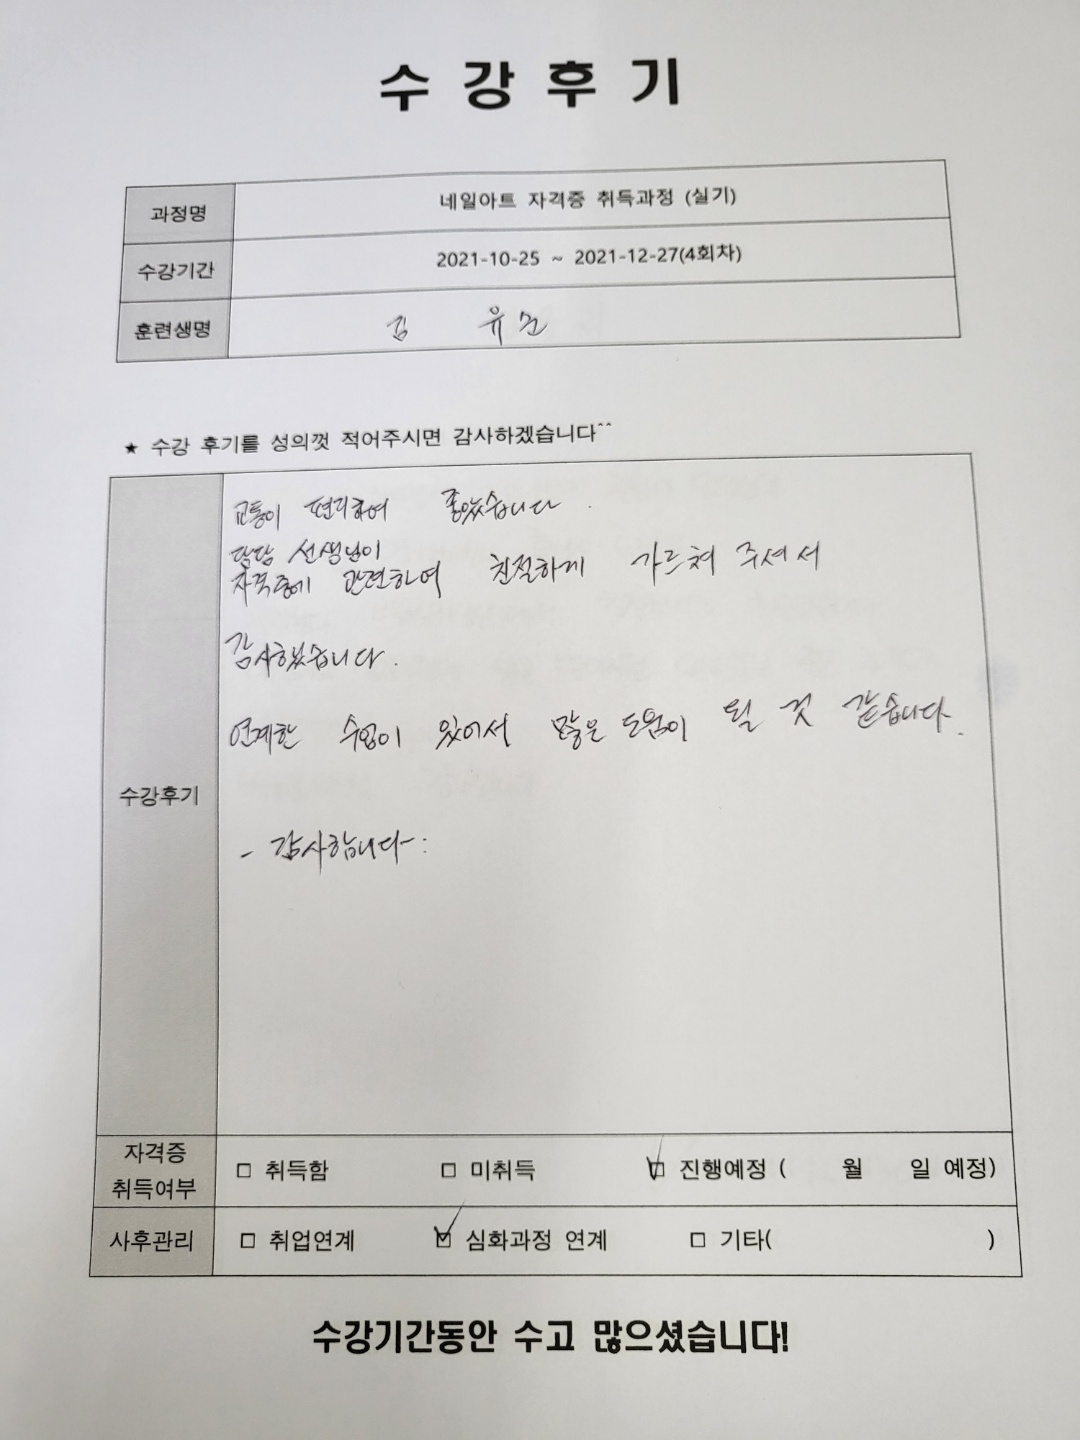 수강후기
과정명 네일아트 자격증 취득과정 (실기)
수강기간 2021-10-25 ~ 2021-12-27(4회차)
훈련생명 김 유
★ 수강 후기를 성의껏 적어주시면 감사하겠습니다^^
교통이 편리하여 좋았습니다.
담당 선생님이
자격증에 관련하여 친절하게 가르쳐 주셔서
감사했습니다.
연계한 수업이 있어서 많은 도움이 될 것 같습니다.
수강후기
- 감사합니다- :
자격증
취득여부
□ 취득함 □ 미취득 ☑ 진행예정 ( 월 일 예정)
사후관리 □ 취업연계 ☑ 심화과정 연계 □ 기타( )
수강기간동안 수고 많으셨습니다!